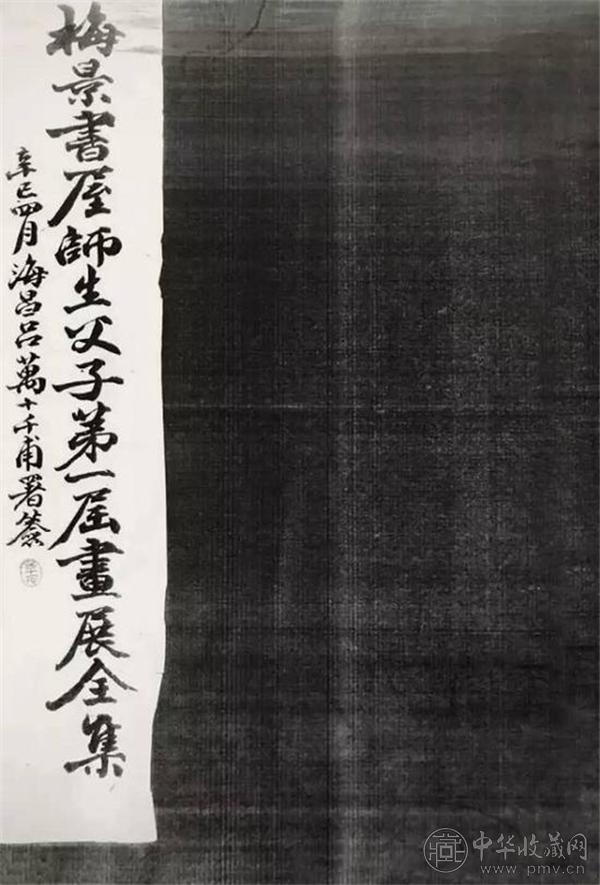 梅景書屋師生父子第一屆畫展全集
辛巳四月海昌吕萬十千甫署簽
中华收藏网
www.pmv.cn